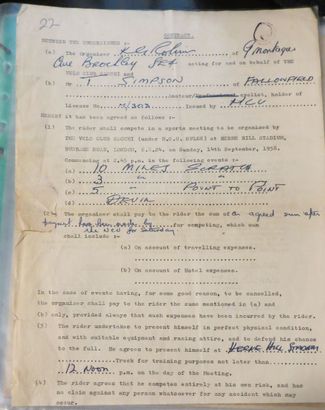 22
CONTRACT.
BETWEEN THE UNDERSIGNED :-
(a) The Organiser of 9 Montague
Ave Brockley SE4 acting for and on behalf of THE
VELO CLUB and
(b) Mr T SIMPSON of FALLOWFIELD
cyclist, holder of
License No. Issued by
HEREBY it has been agreed as follows :-
(1) The rider shall compete in a sports meeting to be organised by
THE VELO CLUB (under N.C.U. RULES) at HERNE HILL STADIUM,
BURBAGE ROAD, LONDON, S.E.24. on Sunday, 14th September, 1958.
Commencing at 2.45 p.m. in the following events :-
(a) 10 MILES
(b) 3 " "
(c) 5 " POINT TO POINT
(d) DEVIL
(2) The organiser shall pay to the rider the sum of a agreed sum after
has been made by for competing, which sum
shall include :- the
(a) On account of travelling expenses.
(b) On account of Hotel expenses.
In the case of events having, for some good reason, to be cancelled,
the organiser shall pay to the rider the sum mentioned in (a) and
(b) only, provided always that such expenses have been incurred by the rider.
(3) The rider undertakes to present himself in perfect physical condition,
and with suitable equipment and racing attire, and to defend his chance
to the full. He agrees to present himself at HERNE HILL STADIUM
Track for training purposes not later than
12 NOON p.m. on the day of the Meeting.
(4) The rider agrees that he competes entirely at his own risk, and has
no claim against any person whatsoever for any accident which may
occur.